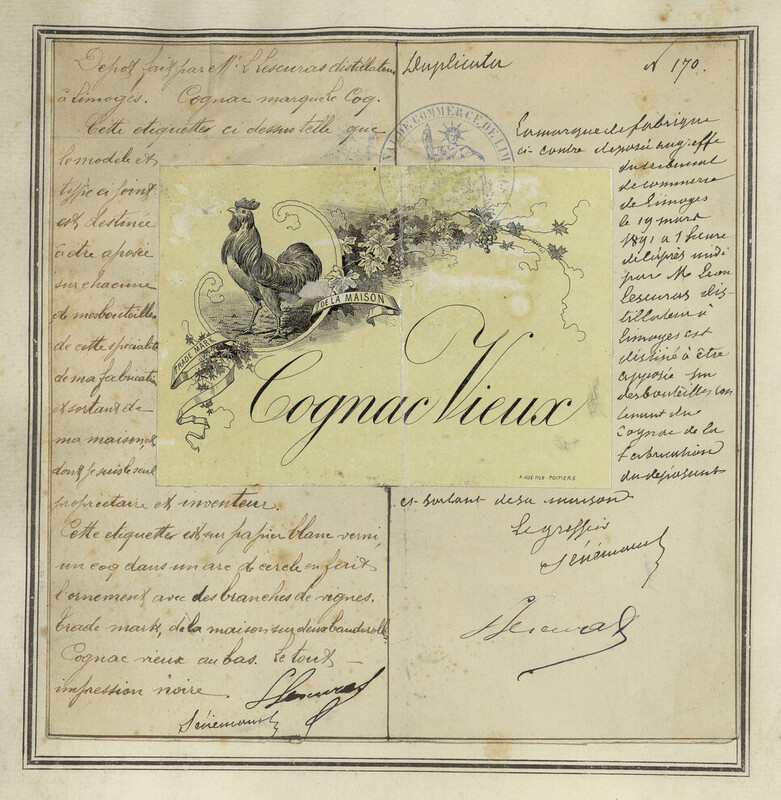 Depot fait par Mr L Lescuras distillateur
à Limoges. Cognac marque le Coq.
Cette etiquettes ci dessus telle que
le modèle et
type ci joint
est destinée
à être aposée
sur chacune
de mes bouteilles
de cette specialité
de ma fabrication
et sortant de
ma maison, et
dont je suis le seul
propriétaire et inventeur.
Cette etiquettes est sur papier blanc verni,
un coq dans un arc de cercle en fait
l'ornement avec des branches de vignes.
trade mark, de la maison sur deux banderolles
Cognac vieux au bas. Le tout
impression noire.
L Lescuras
Sénémaud
TRADE MARK
DE LA MAISON
Cognac Vieux
F. GUÉ FILS POITIERS
Duplicata
N 170.
TRIBUNAL DE COMMERCE DE LIMOGES
La marque de fabrique
ci contre deposée au greffe
du tribunal
de commerce
de Limoges
le 19 mars
1891 à 1 heure
de l'après midi
par M Leon
Lescuras dis-
tillateur à
Limoges est
destiné à être
apposée sur
des bouteilles con
tenant du
Cognac de la
fabrication
du deposant
et sortant de sa maison
Le greffier
Sénémaud
L Lescuras